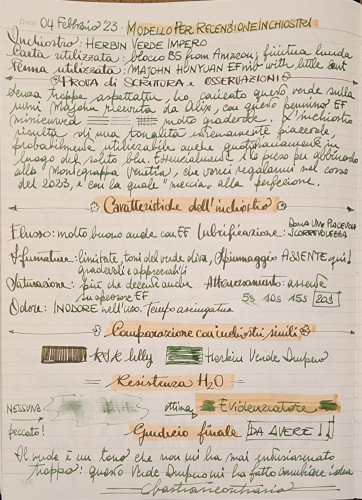 Date 04 Febbraio '23 - MODELLO PER RECENSIONE INCHIOSTRI
Inchiostro: HERBIN VERDE IMPERO
Carta utilizzata: blocco B5 from Amazon; finitura lucida
Penna utilizzata: MAJOHN HÚNYUAN EF nib with little bent
PROVA DI SCRITTURA E OSSERVAZIONI
Senza troppa aspettativa, ho caricato questo verde sulla
mini Majohn ricevuta da Alix, con questo pennino EF
molto gradevole. L'inchiostro
risulta di una tonalità estremamente piacevole,
probabilmente utilizzabile anche quotidianamente in
luogo del solito blu. Essenzialmente l'ho preso per abbinarlo
alla Montegrappa Venetia, che vorrei regalarmi nel corso
del 2023, e con la quale "meccia" alla perfezione.
Caratteristiche dell'inchiostro
Flusso: molto buono anche con EF Lubrificazione: BUONA UNA PIACEVOLE SCORREVOLEZZA
Sfumature: limitate, toni del verde oliva, Spiumaggio ASSENTE qui!
gradevoli e apprezzabili
Saturazione: più che decente anche su spessore EF Attraversamento: assente
5s 10s 15s 20s
Odore: INODORE nell'uso. Tempo asciugatura
Comparazione con inchiostri simili
Herbin Verde Impero
Resistenza H2O
NESSUNA ottima Evidenziatore
peccato!
Giudizio finale DA AVERE!!
Il verde è un tono che non mi ha mai entusiasmato
troppo: questo Verde Impero mi ha fatto cambiare idea